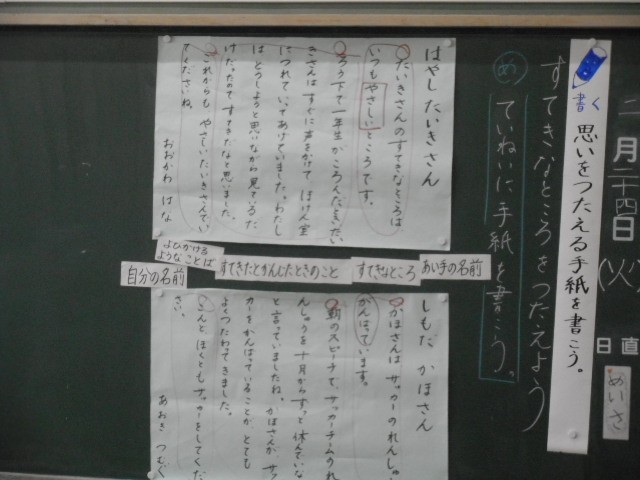 二月二十四日(火)
日直
書く 思いをつたえる手紙を書こう。
すてきなところをつたえよう
め ていねいに手紙を書こう。
はやし たいきさん
たいきさんのすてきなところは
いつもやさしいところです。
ろう下で一年生がころんだとき、たい
きさんはすぐに声をかけて ほけん室
につれていってあげていました。わたし
はどうしようと思いながら見ているだ
けだったので、すてきだなと思いました。
これからも やさしいたいきさんでい
てくださいね。
おおかわ はな
あい手の名前
すてきなところ
すてきだとかんじたときのこと
よびかける
ようなことば
自分の名前
しもだ かほさん
かほさんは サッカーのれんしゅう
がんばっています。
朝のスピーチで、サッカーチームのれ
んしゅうを十月からずっと休んでいな
と言っていましたね。かほさんが サッ
カーをがんばっていることが、とても
よくつたわってきました。
こんど、ぼくともサッカーをしてくだ
さい。
あおき つむぐ